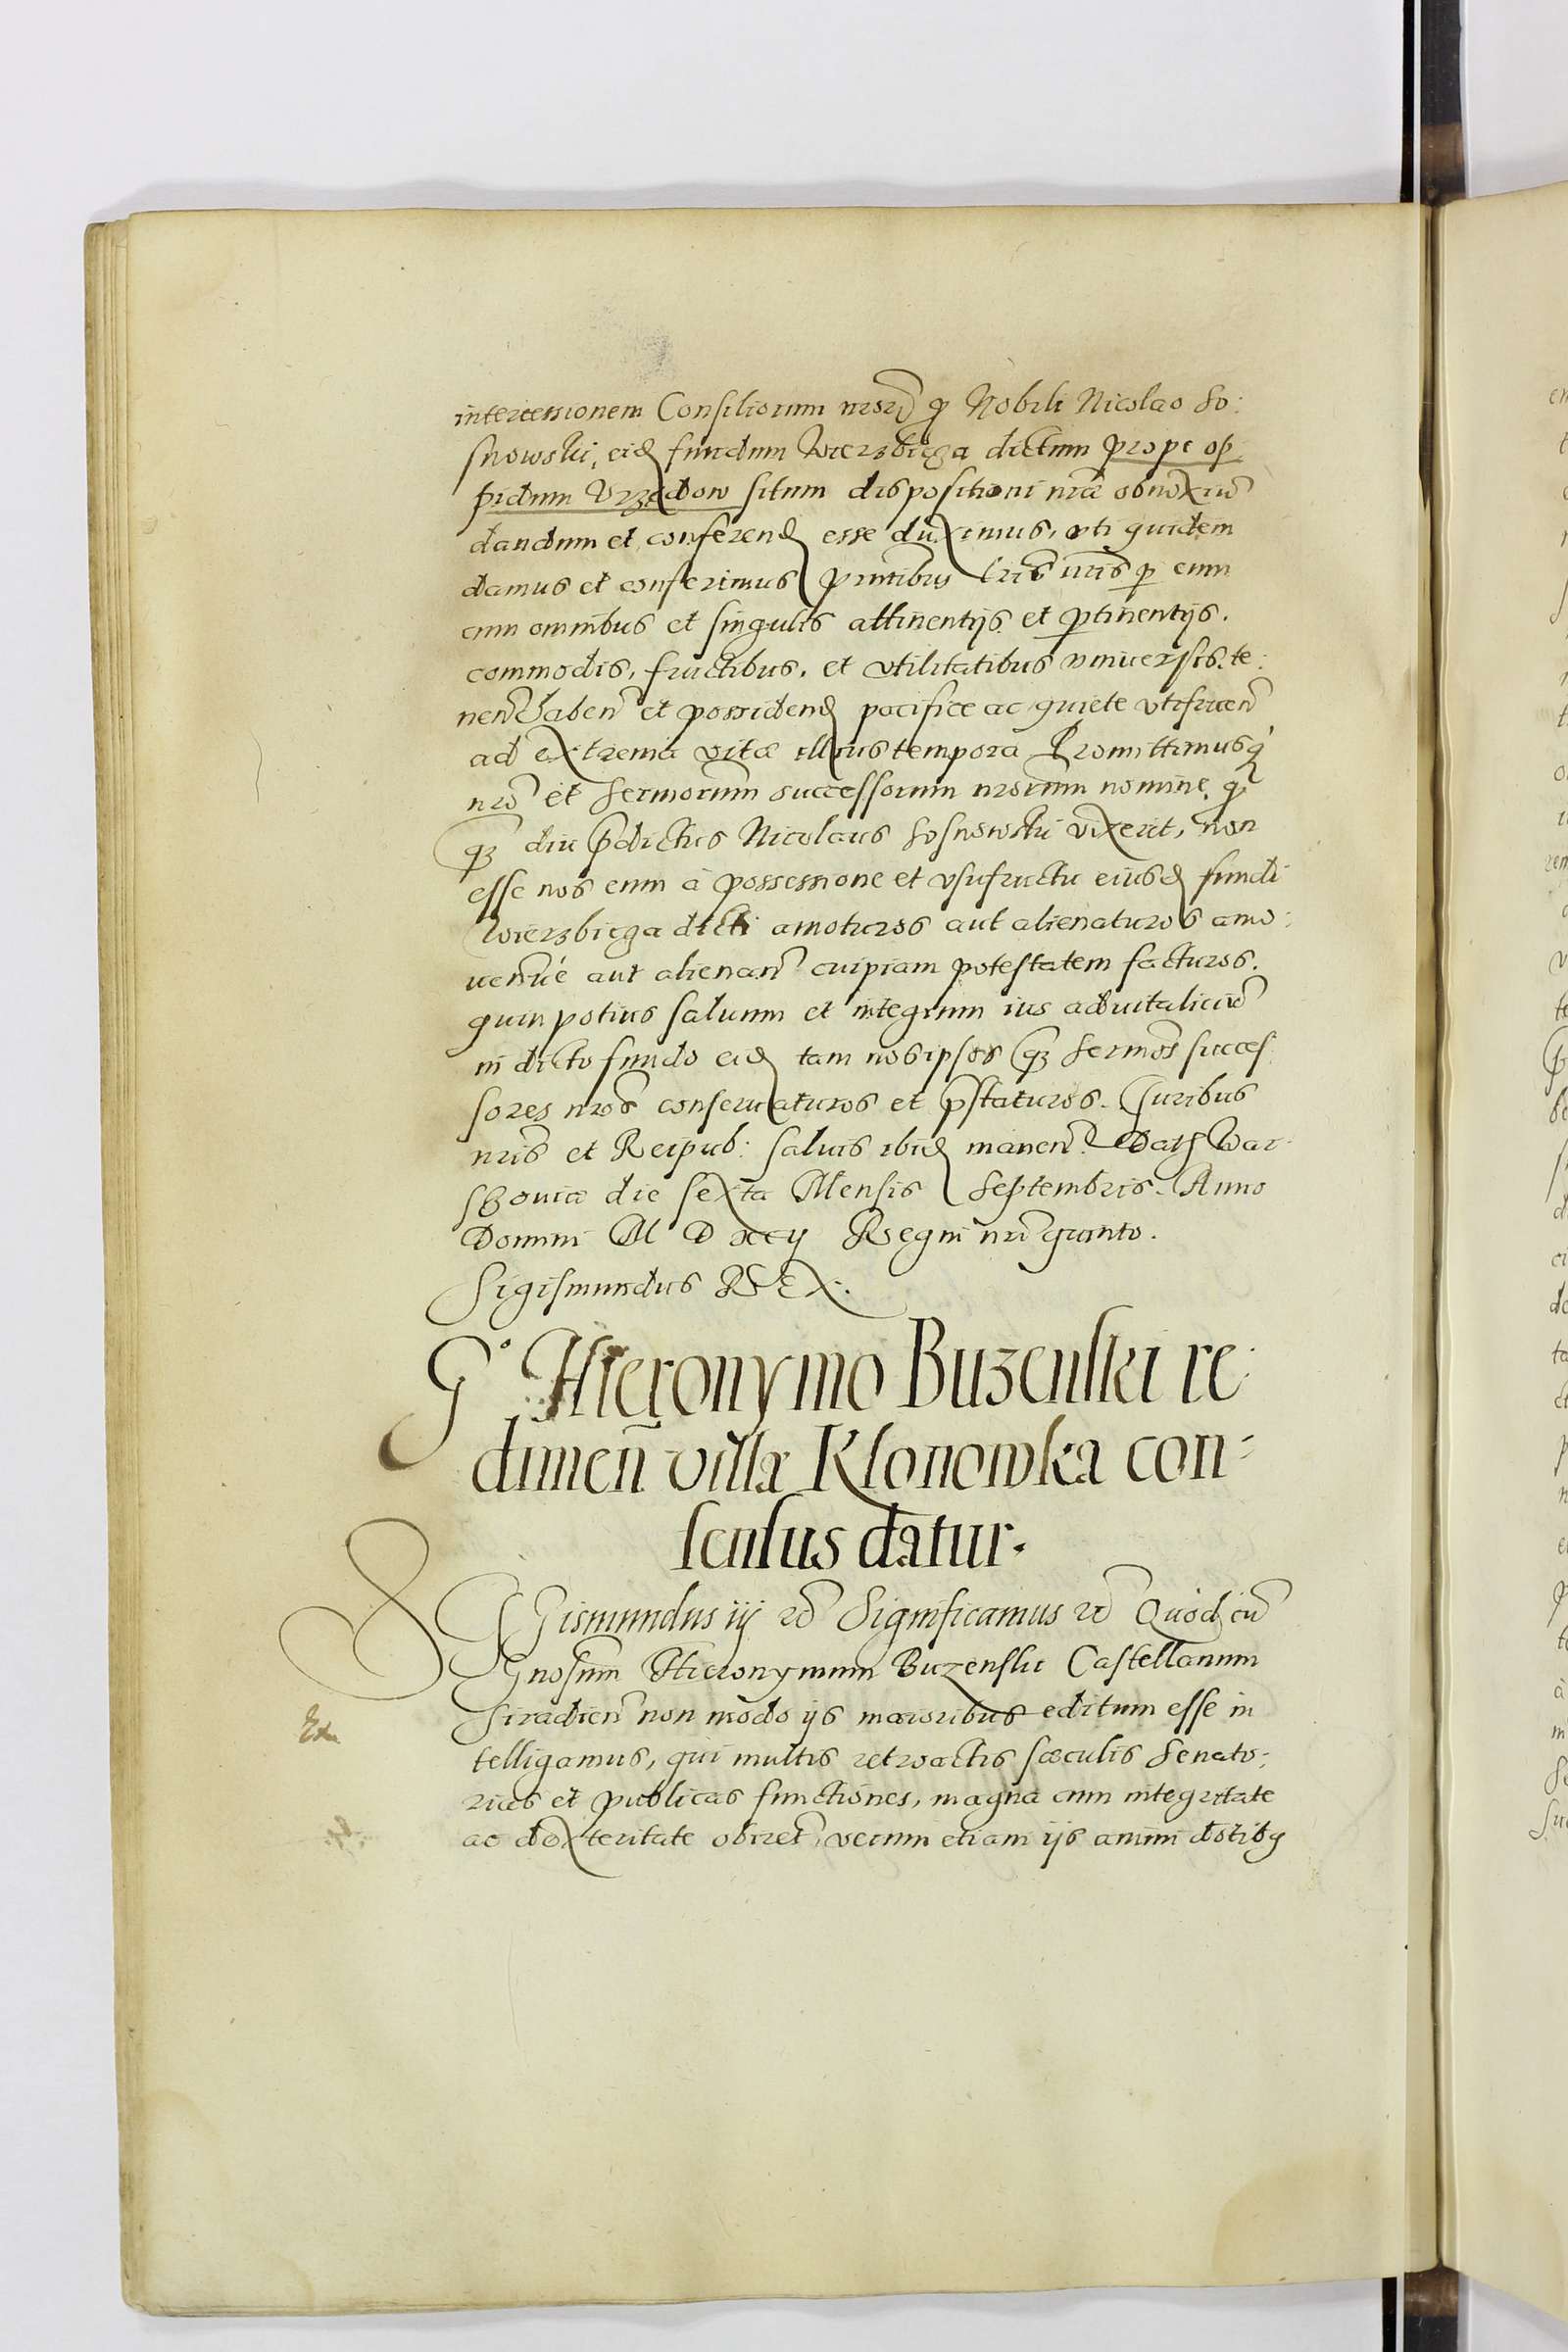 intercessionem Consiliorum nrorũ ꝓ Nobili Nicolao So:
snowski, eidꝫ fundum Wierzbięga dictum prope op
pidum Vrzędow situm dispositioni nræ obnoxiũ
dandum et conferendꝫ esse duximus, vti quidem
damus et conferimus p̃ntibus lris nris per eum
cum omnibus et singulis attinentijs et ꝑtinentijs.
commodis, fructibus, et vtilitatibus vniuersis. te:
neñ habeñ et possidendꝫ pacifice ac quiete vtifrueñ
ad extrema vitæ illius tempora Promittimusq́
nrõ et Sermorum successorum nrorum nomine. ꝙ
qꝫ diu p̃dictus Nicolaus Sosnowski vixerit, non
esse nos eum à possessione et vsufructu eiusdꝫ fundi
Wierzbięga dicti amoturos aut alienaturos amo:
uendiué aut alienañ cuipiam potestatem facturos.
quin potius saluum et integrum ius aduitaliciũ
in dicto fundo eidꝫ tam nos ipsos qꝫ Sermos succes
sores nros conseruaturos et p̃staturos. Juribus
nris et Reipub: saluis ibidꝫ maneñ. Datꝫ War
shouiæ die sexta Mensis Septembris. Anno
Domini M D xcij Regni nri quinto.
Sigismundus REX.
G° Hieronymo Buzenski re:
dimeñ villæ Klonowka con-
sensus datur.
SIGismundus iij &c Significamus &c Quod cũ
Gnosum Hieronymum Buzenski Castellanum
Siradieñ non modo ijs maioribus editum esse in
telligamus, qui multis retroactis sæculis Senato:
rias et publicas functiones, magna cum integritate
ac dexteritate obiret, verum etiam ijs animi dotibꝫ